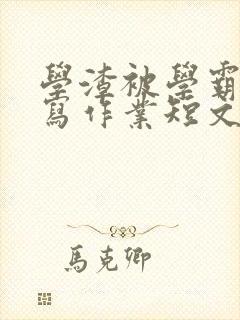 學渣被學霸
寫作業短文
馬克卿